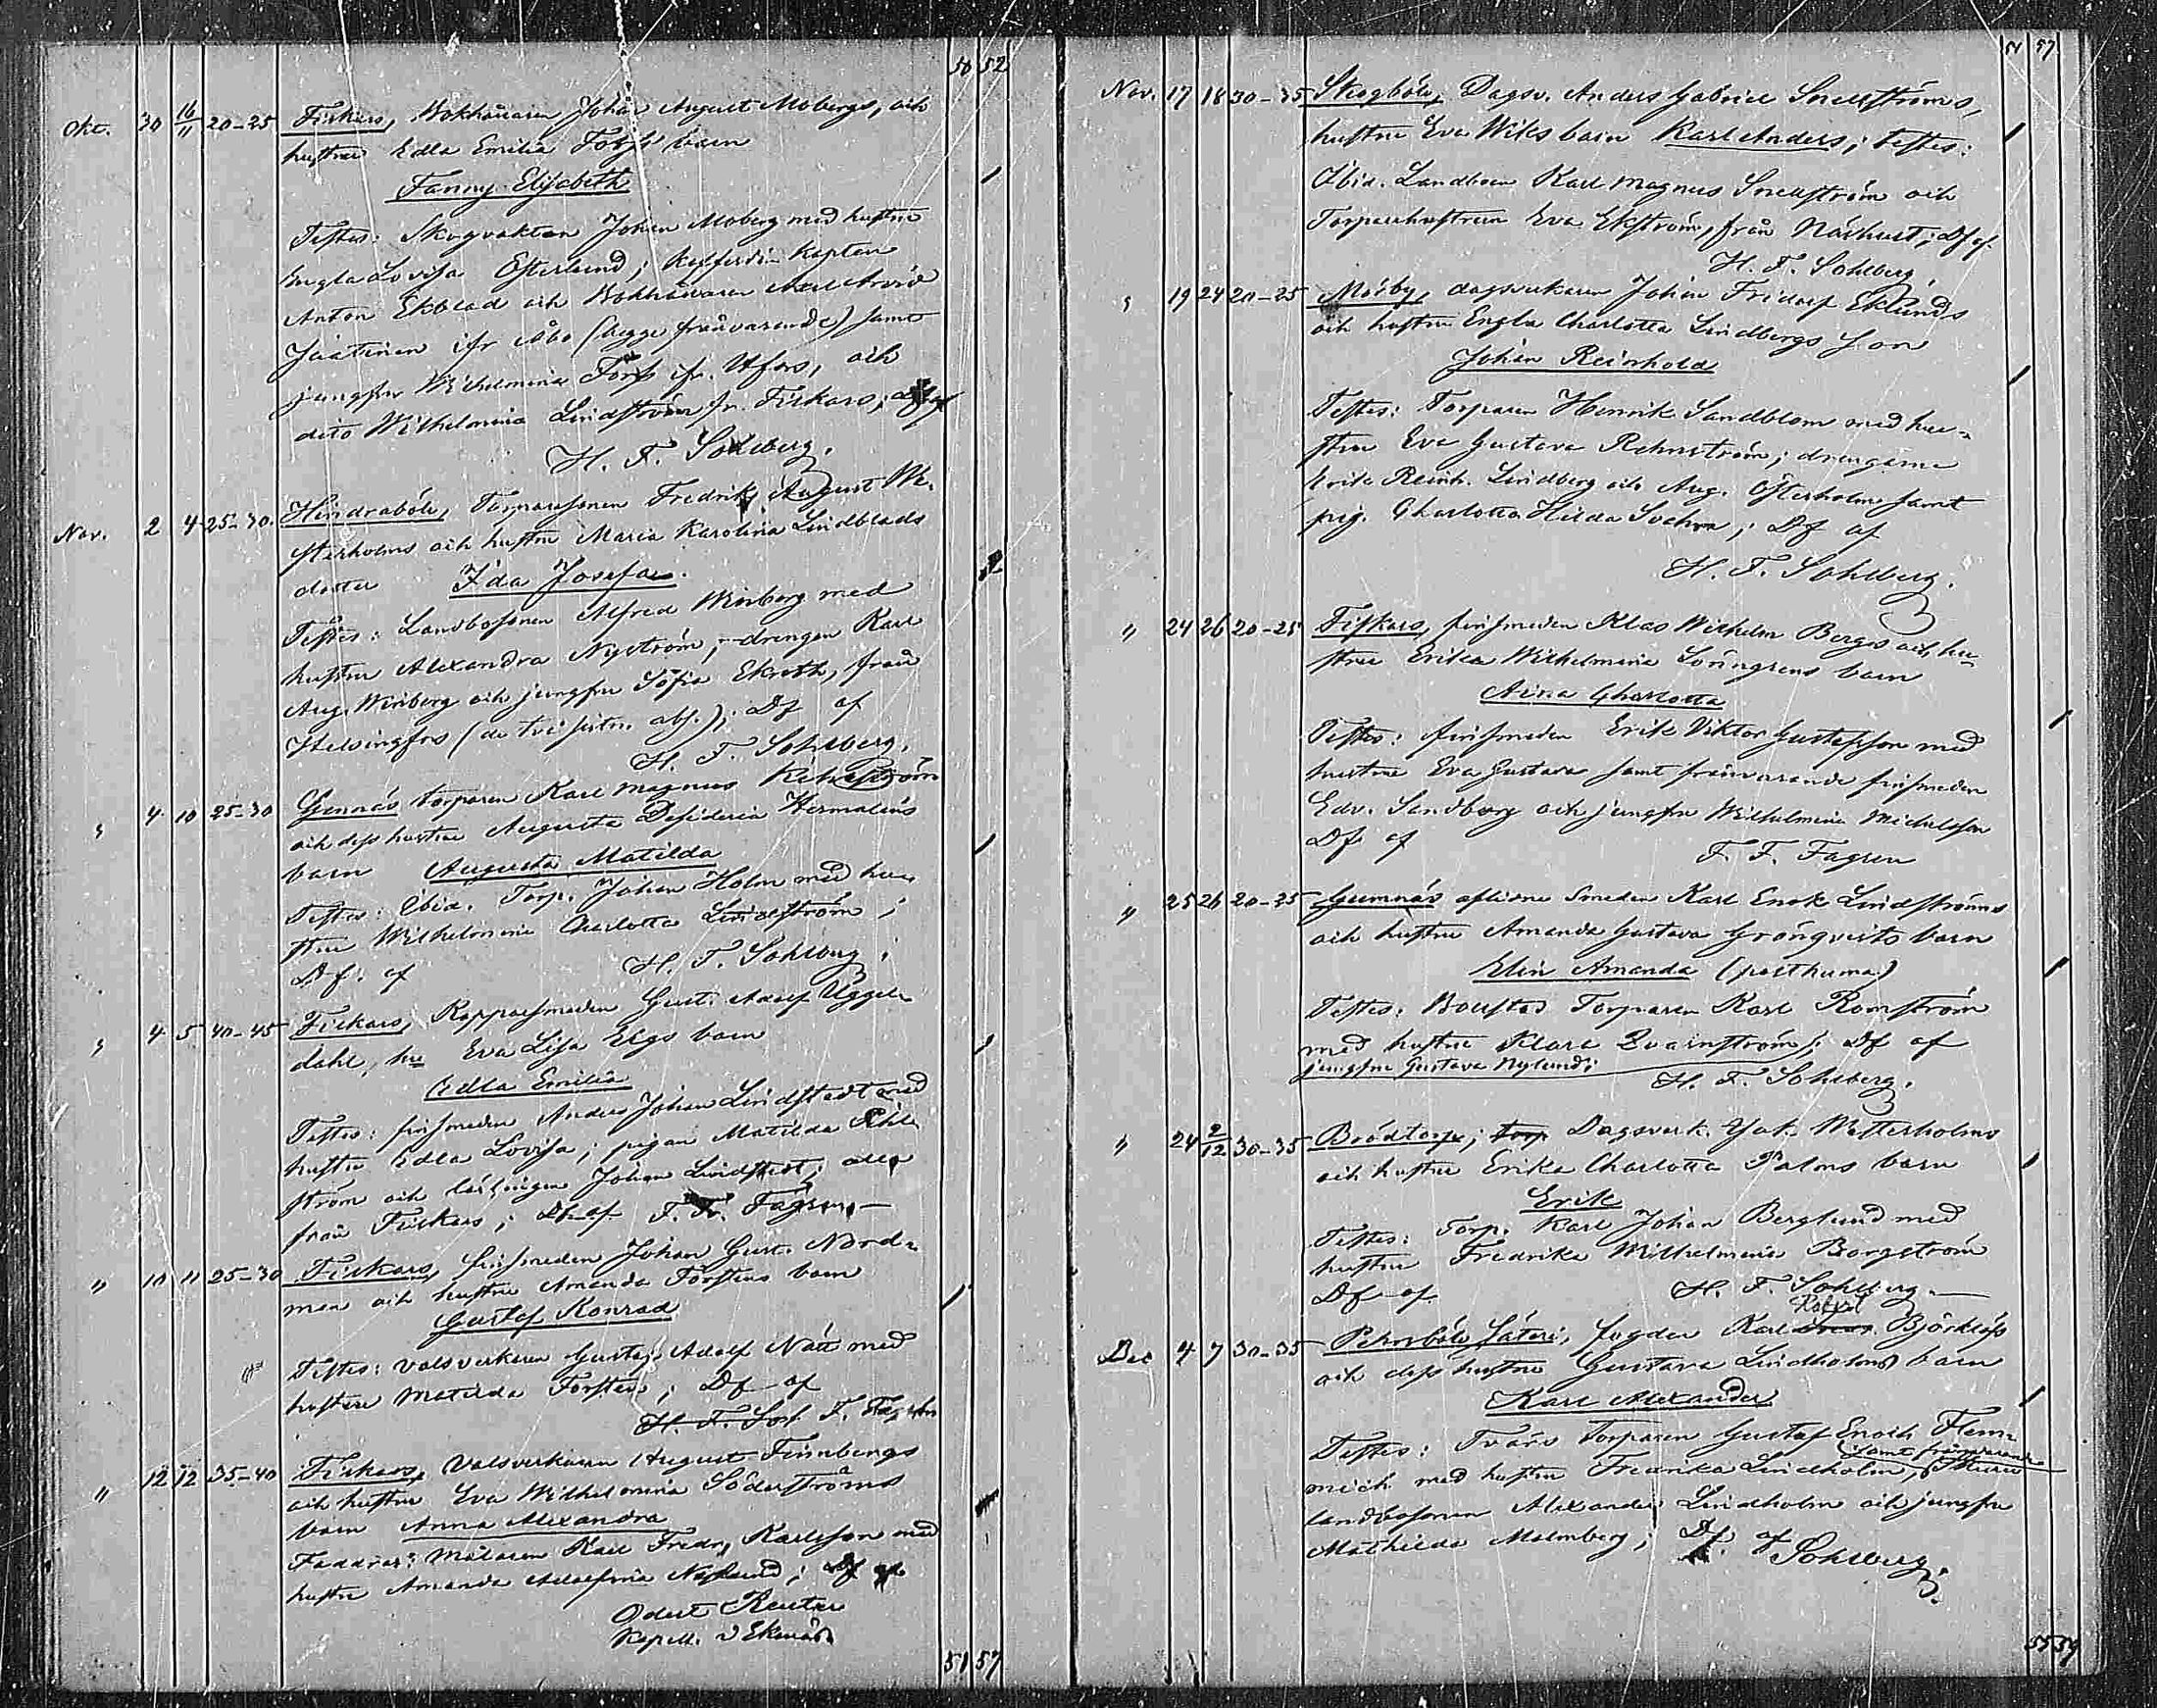 50 52
Okt. 30 16/11 20-25 Fiskars, Bokhållaren Johan August Mobergs, och
hustrus Edla Emilia Forss barn
Fanny Elisabeth
Testes: Skogvaktaren Johan Moberg med hustru
Engla Lovisa Österlund; Kofferdi-Kapten
Anton Ekblad och Bokhållaren Axel Arvid
ifr Åbo (begge frånvarande) samt
jungfru Wilhelmina Forss fr. H:fors, och
dito Wilhelmina Lindström fr. Fiskars; Df af
H. F. Sohlberg.
Nov. 2 4 25-30. Hindraböle, Torparesonen Fredrik August We-
sterholms och hustru Maria Karolina Lindblads
dotter Ida Josefa.
Testes: Landbosonen Alfred Winberg med
hustru Alexandra Nyström; drengen Karl
Aug. Winberg och jungfru Sofia Ekroth, från
Helsingfors (de två sistn. abs.); Df af
H. F. Sohlberg.
" 4 10 25-30 Gumnäs torparen Karl Magnus Rehnström
och dess hustru Augusta Desideria Hermalins
barn Augusta Matilda
Testes: Ibid. Torp. Johan Holm med hu-
stru Wilhelmina Charlotta Lindström;
Df. af H. F. Sohlberg;
" 4 5 40-45 Fiskars, Kopparsmeden Gust. Adolf Uggel-
dahl, hu Eva Lisa Elgs barn
Edla Emilia
Testes: finsmeden Anders Johan Lindstedt med
hustru Edla Lovisa; pigan Matilda
ström och lärlingen Johan Lindstedt; alla
från Fiskars; Df af F. F. Fagrén.
" 10 11 25-30 Fiskars, finsmeden Johan Gust. Nord-
man och hustru Amanda Forsténs barn
Gustaf Konrad
Testes: valsverkaren Gustaf Adolf Nätt med
hustru Matilda Forstén; Df af
H. F. Soh F. Fagrén
" 12 12 35-40 Fiskars, Valsverkaren August Finnbergs
och hustru Eva Wilhelmina Söderströms
barn Anna Alexandra
Faddrar: Målaren Karl Fredr. Karlsson med
hustru Amanda Adolfina Näslund; Df af
Odert Reuter
Kapell. i Ekenäs.
51 57
51 57
Nov. 17 18 30-35 Skogböle, Dagsv. Anders Gabriel Snellströms,
hustru Eva Wiks barn Karl Anders; testes:
Ibid. Landboen Karl Magnus Snellström och
Torparehustrun Eva Ekström, från Näshult; Df af.
H. F. Sohlberg.
" 19 24 20-25 Mörby, dagsverkaren Johan Fridolf Eklunds
och hustru Engla Charlotta Lindbergs son
Johan Reinhold
Testes: Torparen Henrik Sandblom med hu-
stru Eva Gustava Rehnström; drengarne
Erik Reinh. Lindberg och Aug. Österholm samt
pig. Charlotta Hilda Svahn; Df af
H. F. Sohlberg.
" 24 26 20-25 Fiskars, finsmeden Klas Wilhelm Bergs och hu-
stru Erika Wilhelmina Löfgrens barn
Aina Charlotta
Testes: finsmeden Erik Viktor Gustafsson med
hustru Eva Gustava samt frånvarande finsmeden
Edv. Sandberg och jungfru Wilhelmina Michelsson
Df af F. F. Fagrén
" 25 26 20-25 Gumnäs aflidne Smeden Karl Enok Lindströms
och hustru Amanda Gustava Grönqvists barn
Elin Amanda (posthuma)
Testes: Bollstad Torparen Karl Romström
med hustru Klara Qvarnström; Df af
jungfru Gustava Nylund;
H. F. Sohlberg.
" 24 2/12 30-35 Brödtorp; torp. Dagsverk. Jak. Westerholms
och hustru Erika Charlotta Palms barn
Erik
Testes: Torp. Karl Johan Berglund med
hustru Fredrika Wilhelmina Borgström
Df af. H. F. Sohlberg.
Dec 4 7 30-35 Pehrsböle Säteri, fogden Karl Björklöfs
och dess hustru Gustava Lindholms barn
Karl Alexander
Testes: Torparen Gustaf Enoch Flem-
mich med hustru Fredrika Lindholm, samt frånvarande
landbosonen Alexander Lindholm och jungfru
Mathilda Malmberg; Df. af
Sohlberg.
55 59